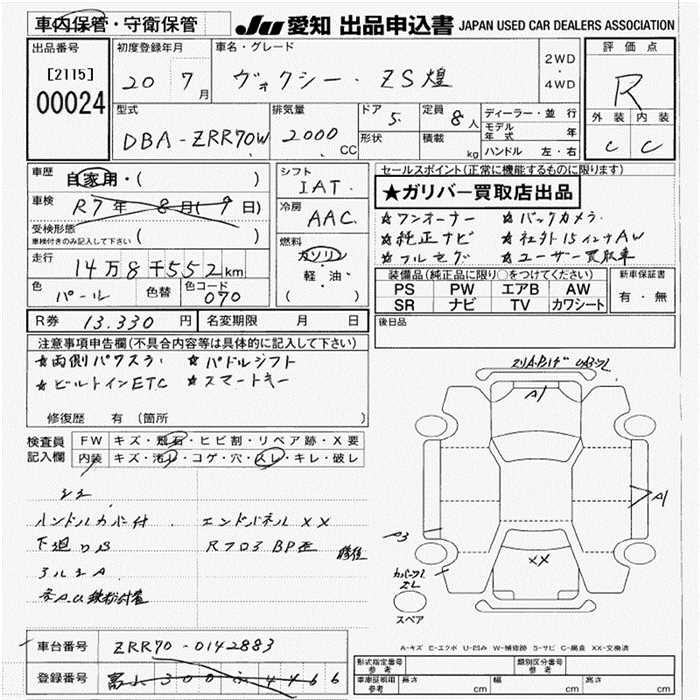 車内保管・守衛保管
JU 愛知 出品申込書 JAPAN USED CAR DEALERS ASSOCIATION
出品番号
[2115]
00024
初度登録年月
20 7月
車名・グレード
ヴォクシー・ZS煌
2WD
・
4WD
評価点
R
外装 内装
C C
型式
DBA-ZRR70W
排気量
2000 CC
ドア 5
形状
定員 8人
積載 kg
ディーラー・並行
モデル年式 年
ハンドル 左・右
車歴
自家用・( )
車検
R7年 8月(9日)
受検形態
車検付きのみ記入して下さい ( )
走行
14万8千552km
色 パール 色替 色コード 070
シフト
IAT.
冷房
AAC.
燃料
ガソリン
軽・油
( )
セールスポイント(正常に機能するものに限ります)
★ガリバー買取店出品
☆ワンオーナー ☆バックカメラ.
☆純正ナビ ☆社外15インチAW
☆フルセグ ☆ユーザー買取車
装備品(純正品に限り○をつけてください)
PS PW エアB AW
SR ナビ TV カワシート
新車保証書
有・無
後日品
R券 13.330円 名変期限 月 日
注意事項申告欄(不具合内容等は具体的に記入して下さい)
☆両側パワスラ. ☆パドルシフト
☆ビルトインETC ☆スマートキー
修復歴 有(箇所 )
検査員
記入欄
FW キズ・飛石・ヒビ割・リペア跡・X要
内装 キズ・汚レ・コゲ・穴・スレ・キレ・破レ
ハンドルカバー付. エンドパネルXX
下廻りS RフロアBP歪 修復
アルミA
A1
A1
P3
XX
スペア
A-キズ E-エクボ U-凹み W-補修跡 S-サビ C-腐食 XX-交換済
車台番号 ZRR70-0142883
登録番号 富山 300 ふ 4466
形式指定番号 参考
類別区分番号 参考
車庫証明用 参考 長さ cm 幅 cm 高さ cm